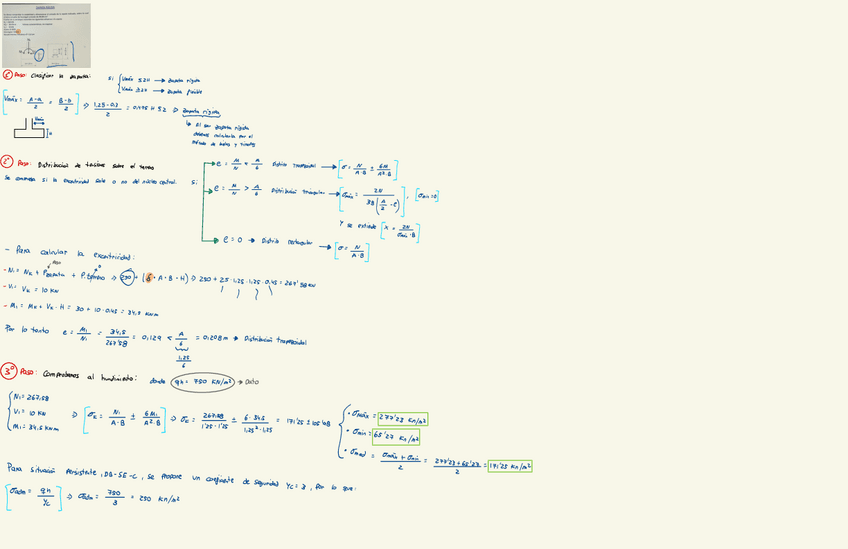 1º Paso: Clasificar la zapata: Si Vmáx ≤ 2H → Zapata rígida
Vmáx ≥ 2H → Zapata flexible
[Vmáx = A-a/2 = B-b/2] ⇒ 1.25-0.3/2 = 0.475 H ≤ 2 ⇒ Zapata rígida
↳ Al ser zapata rígida
debemos calcularla por el
método de bielas y tirantes
Vmáx
H
2º Paso: Distribución de tensiones sobre el terreno
Se comprueba si la excentricidad sale o no del núcleo central. Si
e = M/N < A/6 Distrib trapezoidal → [σ = N/A·B ± 6M/A²·B]
e = M/N > A/6 Distribución triangular → [σmáx = 2N/3B(A/2 - e)], [σmin = 0]
Y se extiende [x = 2N/σmáx·B]
e = 0 → Distrib rectangular → [σ = N/A·B]
- Para calcular la excentricidad:
- N1 = Nk + Pzapata + P. ⇒ 250 + (γ · A · B · H) ⇒ 250 + 25 · 1.25 · 1.25 · 0.45 = 267'58 KN
- V1 = Vk = 10 KN
- M1 = Mk + Vk · H = 30 + 10 · 0.45 = 34,5 KNm
Por lo tanto e = M1/N1 = 34,5/267'58 = 0,129 < A/6 = 0,208 m → Distribución Trapezoidal
1,25/6
3º Paso: Comprobamos al hundimiento: donde qh = 750 KN/m² → Dato
N1 = 267.58
V1 = 10 KN
M1 = 34,5 KNm
⇒ [σE = N1/A·B ± 6M1/A²·B] ⇒ σE = 267.58/1'25·1'25 ± 6·34.5/1.25²·1.25 = 171'25 ± 105'98
· σmáx = 277'23 KN/m²
· σmin = 65'27 KN/m²
· σmed = σmáx + σmin/2 = 277'23 + 65'27/2 = 171'25 KN/m²
Para situación persistente, DB-SE-C, se propone un coeficiente de seguridad γc = 3, por lo que:
[σadm = qh/γc] ⇒ σadm = 750/3 = 250 KN/m²